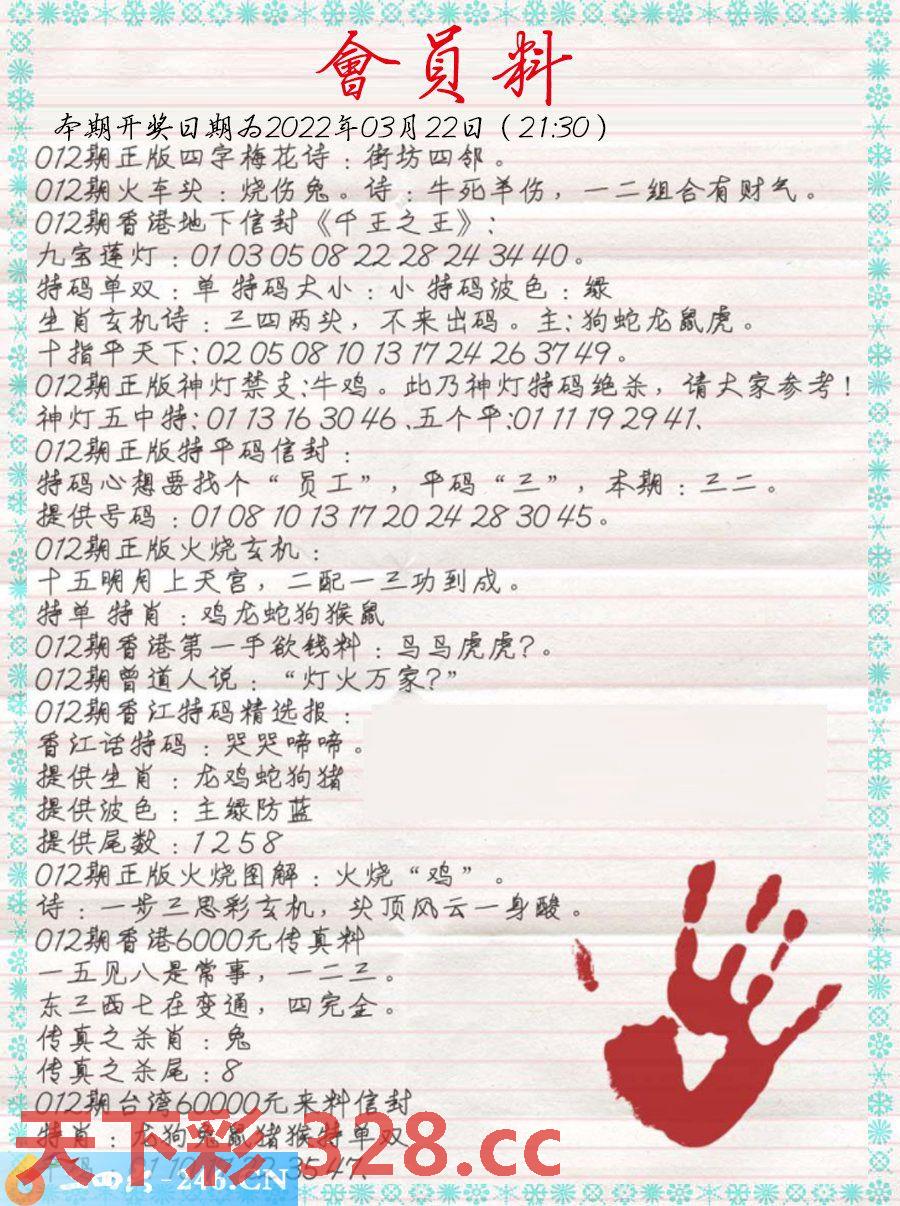 會員料
本期开奖日期为2022年03月22日（21:30）
012期正版四字梅花诗：街坊四邻。
012期火车头：烧伤兔。诗：牛死羊伤，一二组合有财气。
012期香港地下信封《千王之王》：
九宝莲灯：01 03 05 08 22 28 24 34 40。
特码单双：单 特码大小：小 特码波色：绿
生肖玄机诗：三四两头，不来出码。主：狗蛇龙鼠虎。
十指平天下：02 05 08 10 13 17 24 26 37 49。
012期正版神灯禁支：牛鸡。此乃神灯特码绝杀，请大家参考！
神灯五中特：01 13 16 30 46、五个平：01 11 19 29 41、
012期正版特平码信封：
特码心想要找个“员工”，平码“三”，本期：三二。
提供号码：01 08 10 13 17 20 24 28 30 45。
012期正版火烧玄机：
十五明月上天宫，二配一三功到成。
特单 特肖：鸡龙蛇狗猴鼠
012期香港第一手欲钱料：马马虎虎？。
012期曾道人说：“灯火万家？”
012期香江特码精选报：
香江话特码：哭哭啼啼。
提供生肖：龙鸡蛇狗猪
提供波色：主绿防蓝
提供尾数：1 2 5 8
012期正版火烧图解：火烧“鸡”。
诗：一步三思彩玄机，头顶风云一身酸。
012期香港6000元传真料
一五见八是常事，一二三。
东三西七在变通，四完全。
传真之杀肖：兔
传真之杀尾：8
012期台湾60000元来料信封
特肖：龙狗兔鼠猪猴特单双
35 47、
天下彩 328.cc
二四六-246.CN